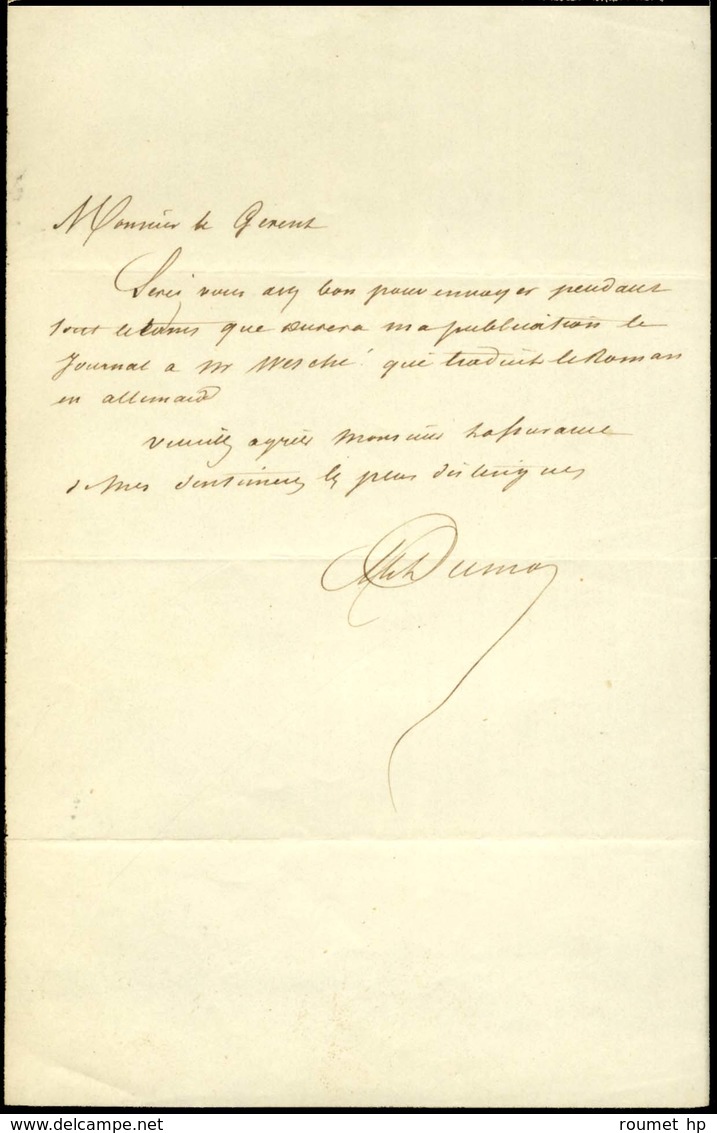 Monsieur le Gerent
Serez vous assez bon pour envoyer pendant
tout le tems que durera ma publication le
Journal a Mr Wesché qui traduit le Roman
en allemand
Veuillez agréer Monsieur l'assurance
de mes sentiments les plus distingués
Alex Dumas
www.delcampe.net
roumet hp